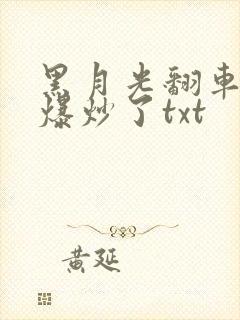 黑月光翻車
爆炒了txt
黄延